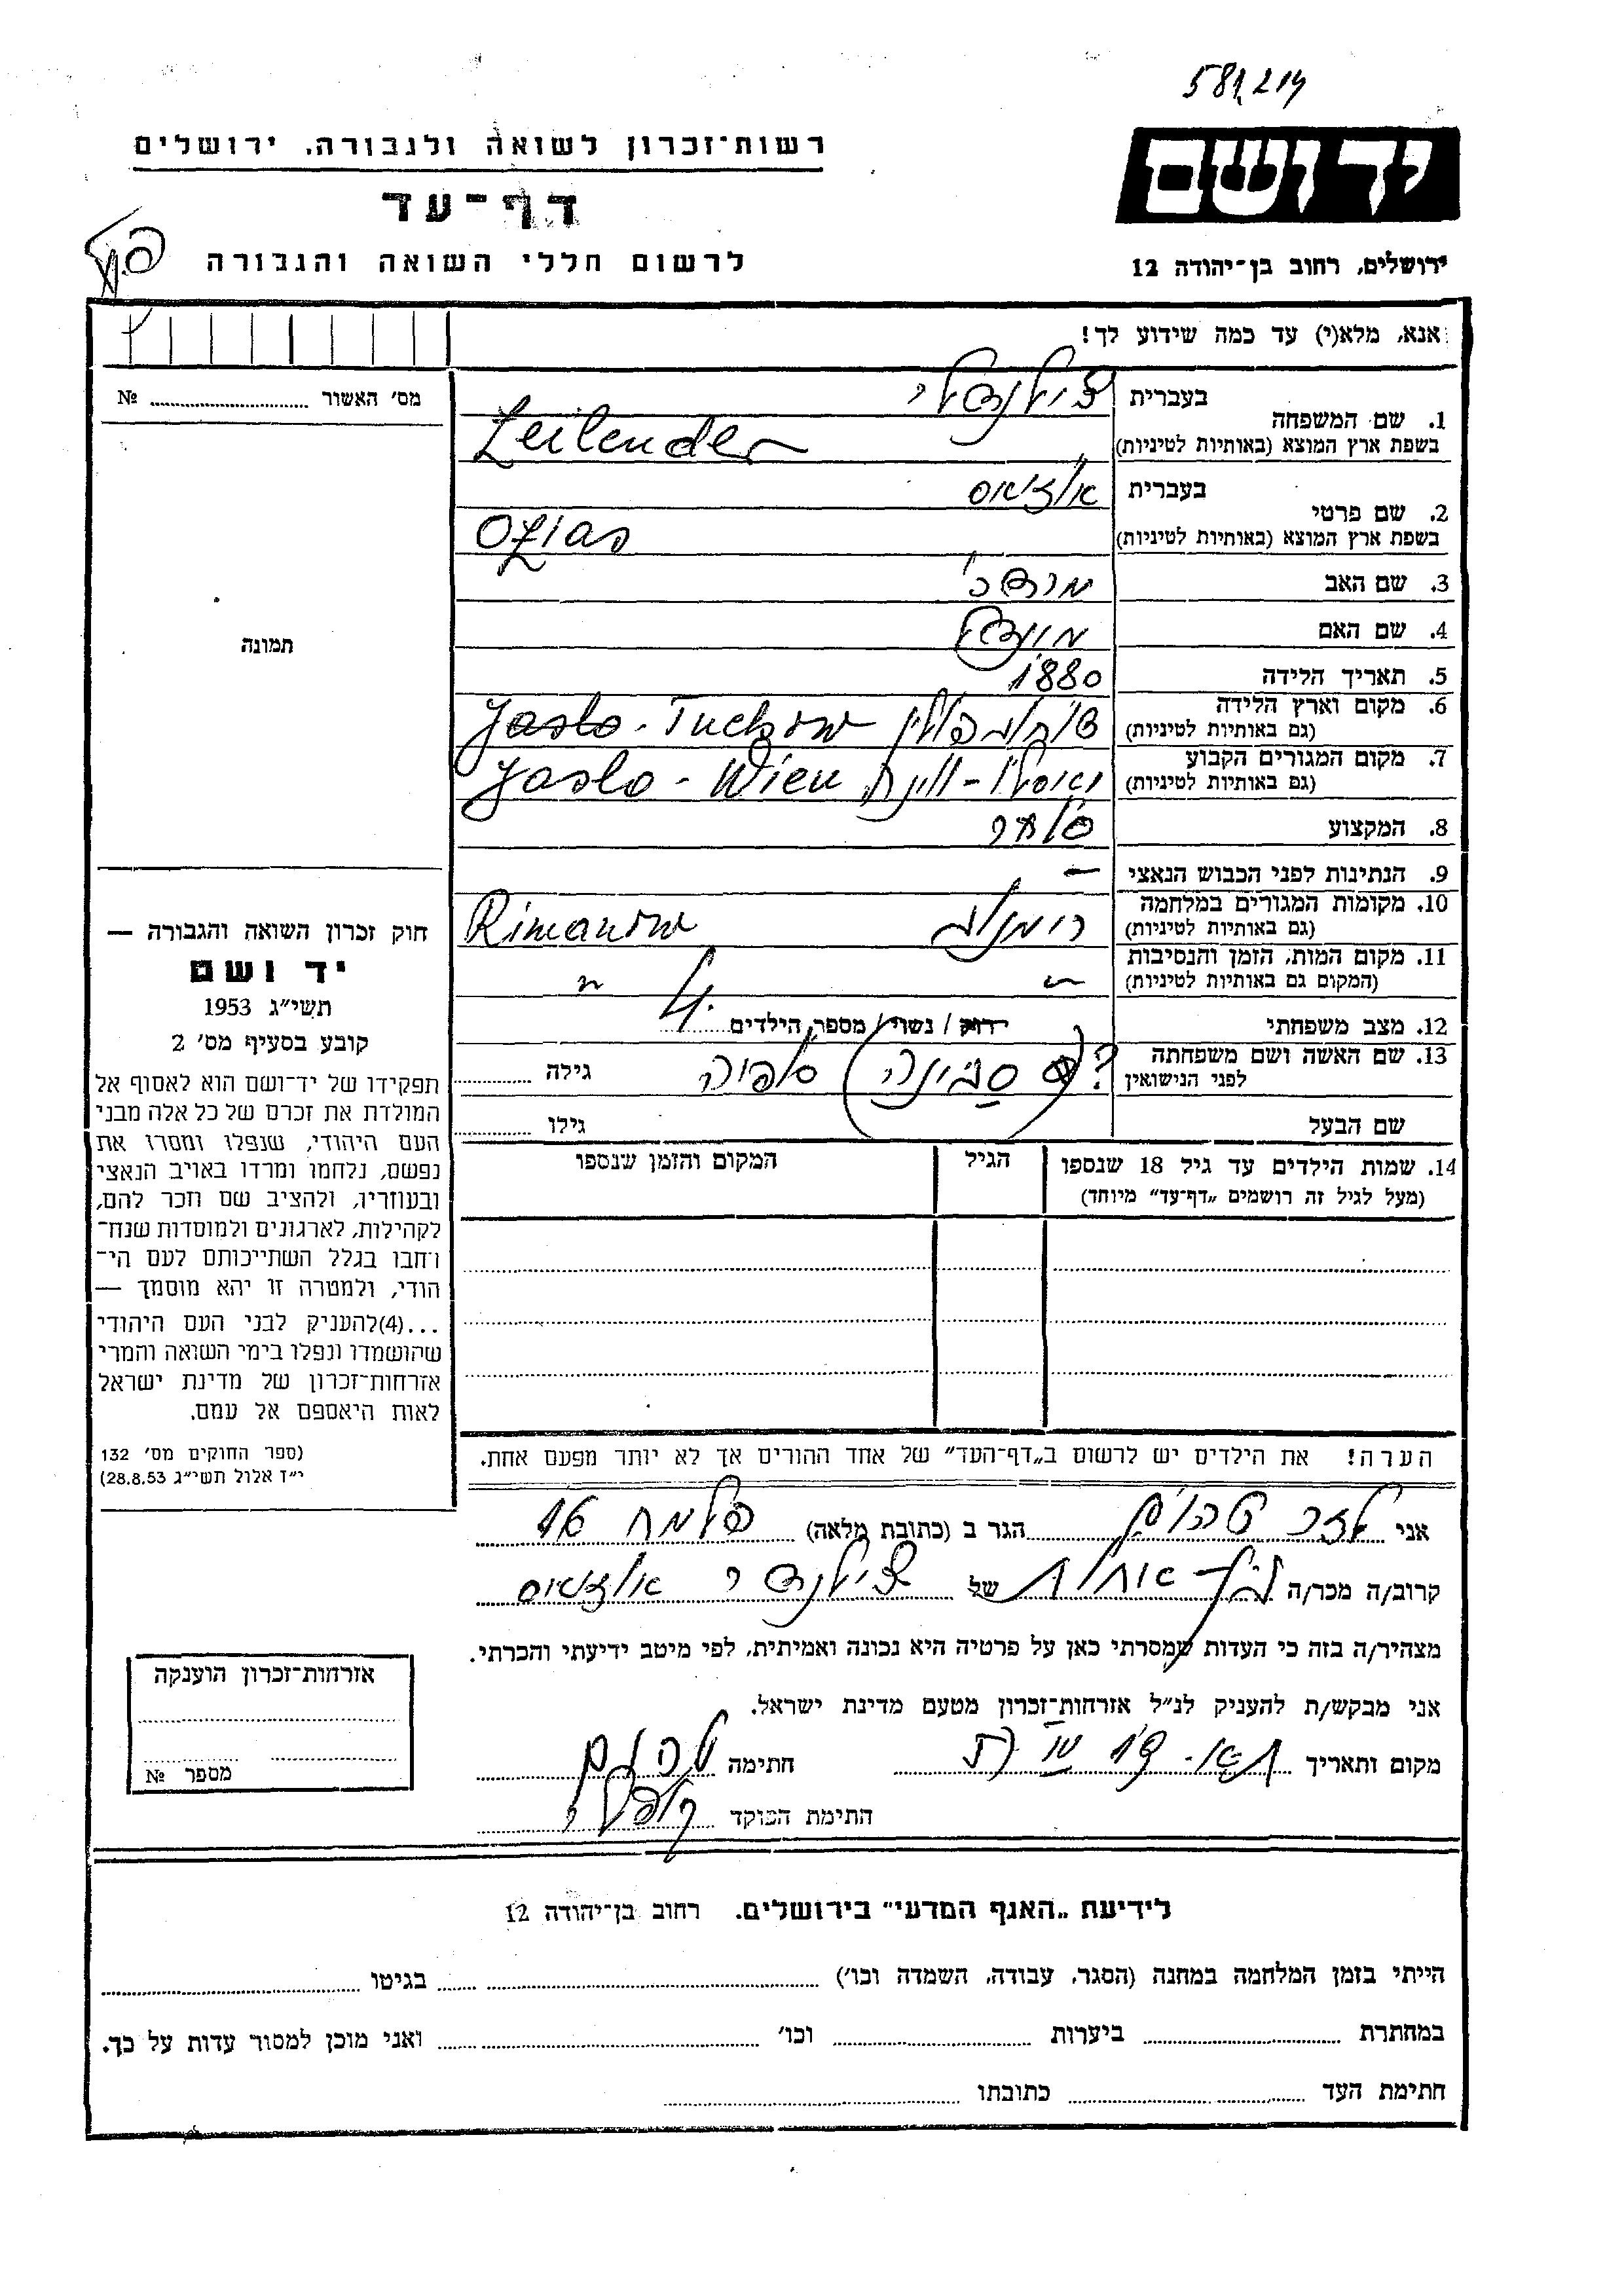 581,214
יד ושם
ירושלים, רחוב בן־יהודה 12
רשות־זכרון לשואה ולגבורה, ירושלים
דף־עד
לרשום חללי השואה והגבורה
אנא, מלא(י) עד כמה שידוע לך!
מס' האשור № 
תמונה
1. שם המשפחה
בעברית
בשפת ארץ המוצא (באותיות לטיניות) Zeilender
2. שם פרטי
בעברית אוזיאס
בשפת ארץ המוצא (באותיות לטיניות) Ozias
3. שם האב מרדכי
4. שם האם
5. תאריך הלידה 1880
6. מקום וארץ הלידה
(גם באותיות לטיניות) טוחוב פולין Jaslo - Tuchow
7. מקום המגורים הקבוע
(גם באותיות לטיניות) יאסלו - וינה Jaslo - Wien
8. המקצוע סוחר
9. הנתינות לפני הכבוש הנאצי —
10. מקומות המגורים במלחמה
(גם באותיות לטיניות) רימנוב Rimanow
11. מקום המות, הזמן והנסיבות
(המקום גם באותיות לטיניות) " "
12. מצב משפחתי רווק / נשוי / מספר הילדים 4
13. שם האשה ושם משפחתה
לפני הנישואין ? סבינה גילה
שם הבעל גילו
14. שמות הילדים עד גיל 18 שנספו
(מעל לגיל זה רושמים „דף־עד” מיוחד)
הגיל
המקום והזמן שנספו
חוק זכרון השואה והגבורה —
יד ושם
תשי״ג 1953
קובע בסעיף מס' 2
תפקידו של יד־ושם הוא לאסוף אל
המולדת את זכרם של כל אלה מבני
העם היהודי, שנפלו ומסרו את
נפשם, נלחמו ומרדו באויב הנאצי
ובעוזריו, ולהציב שם וזכר להם,
לקהילות, לארגונים ולמוסדות שנח־
רבו בגלל השתייכותם לעם הי־
הודי, ולמטרה זו יהא מוסמך —
...(4)להעניק לבני העם היהודי
שהושמדו ונפלו בימי השואה והמרי
אזרחות־זכרון של מדינת ישראל
לאות היאספם אל עמם.
(ספר החוקים מס' 132
י״ז אלול תשי״ג 28.8.53)
הערה! את הילדים יש לרשום ב„דף־העד” של אחד ההורים אך לא יותר מפעם אחת.
אני הגר ב (כתובת מלאה)
קרוב/ה מכר/ה של אוזיאס
מצהיר/ה בזה כי העדות שמסרתי כאן על פרטיה היא נכונה ואמיתית, לפי מיטב ידיעתי והכרתי.
אני מבקש/ת להעניק לנ״ל אזרחות־זכרון מטעם מדינת ישראל.
מקום ותאריך חתימה
חתימת הפוקד
אזרחות־זכרון הוענקה
מספר №
לידיעת „האגף המדעי” בירושלים. רחוב בן־יהודה 12
הייתי בזמן המלחמה במחנה (הסגר, עבודה, השמדה וכו') בגיטו
במחתרת ביערות וכו' ואני מוכן למסור עדות על כך.
חתימת העד כתובתו